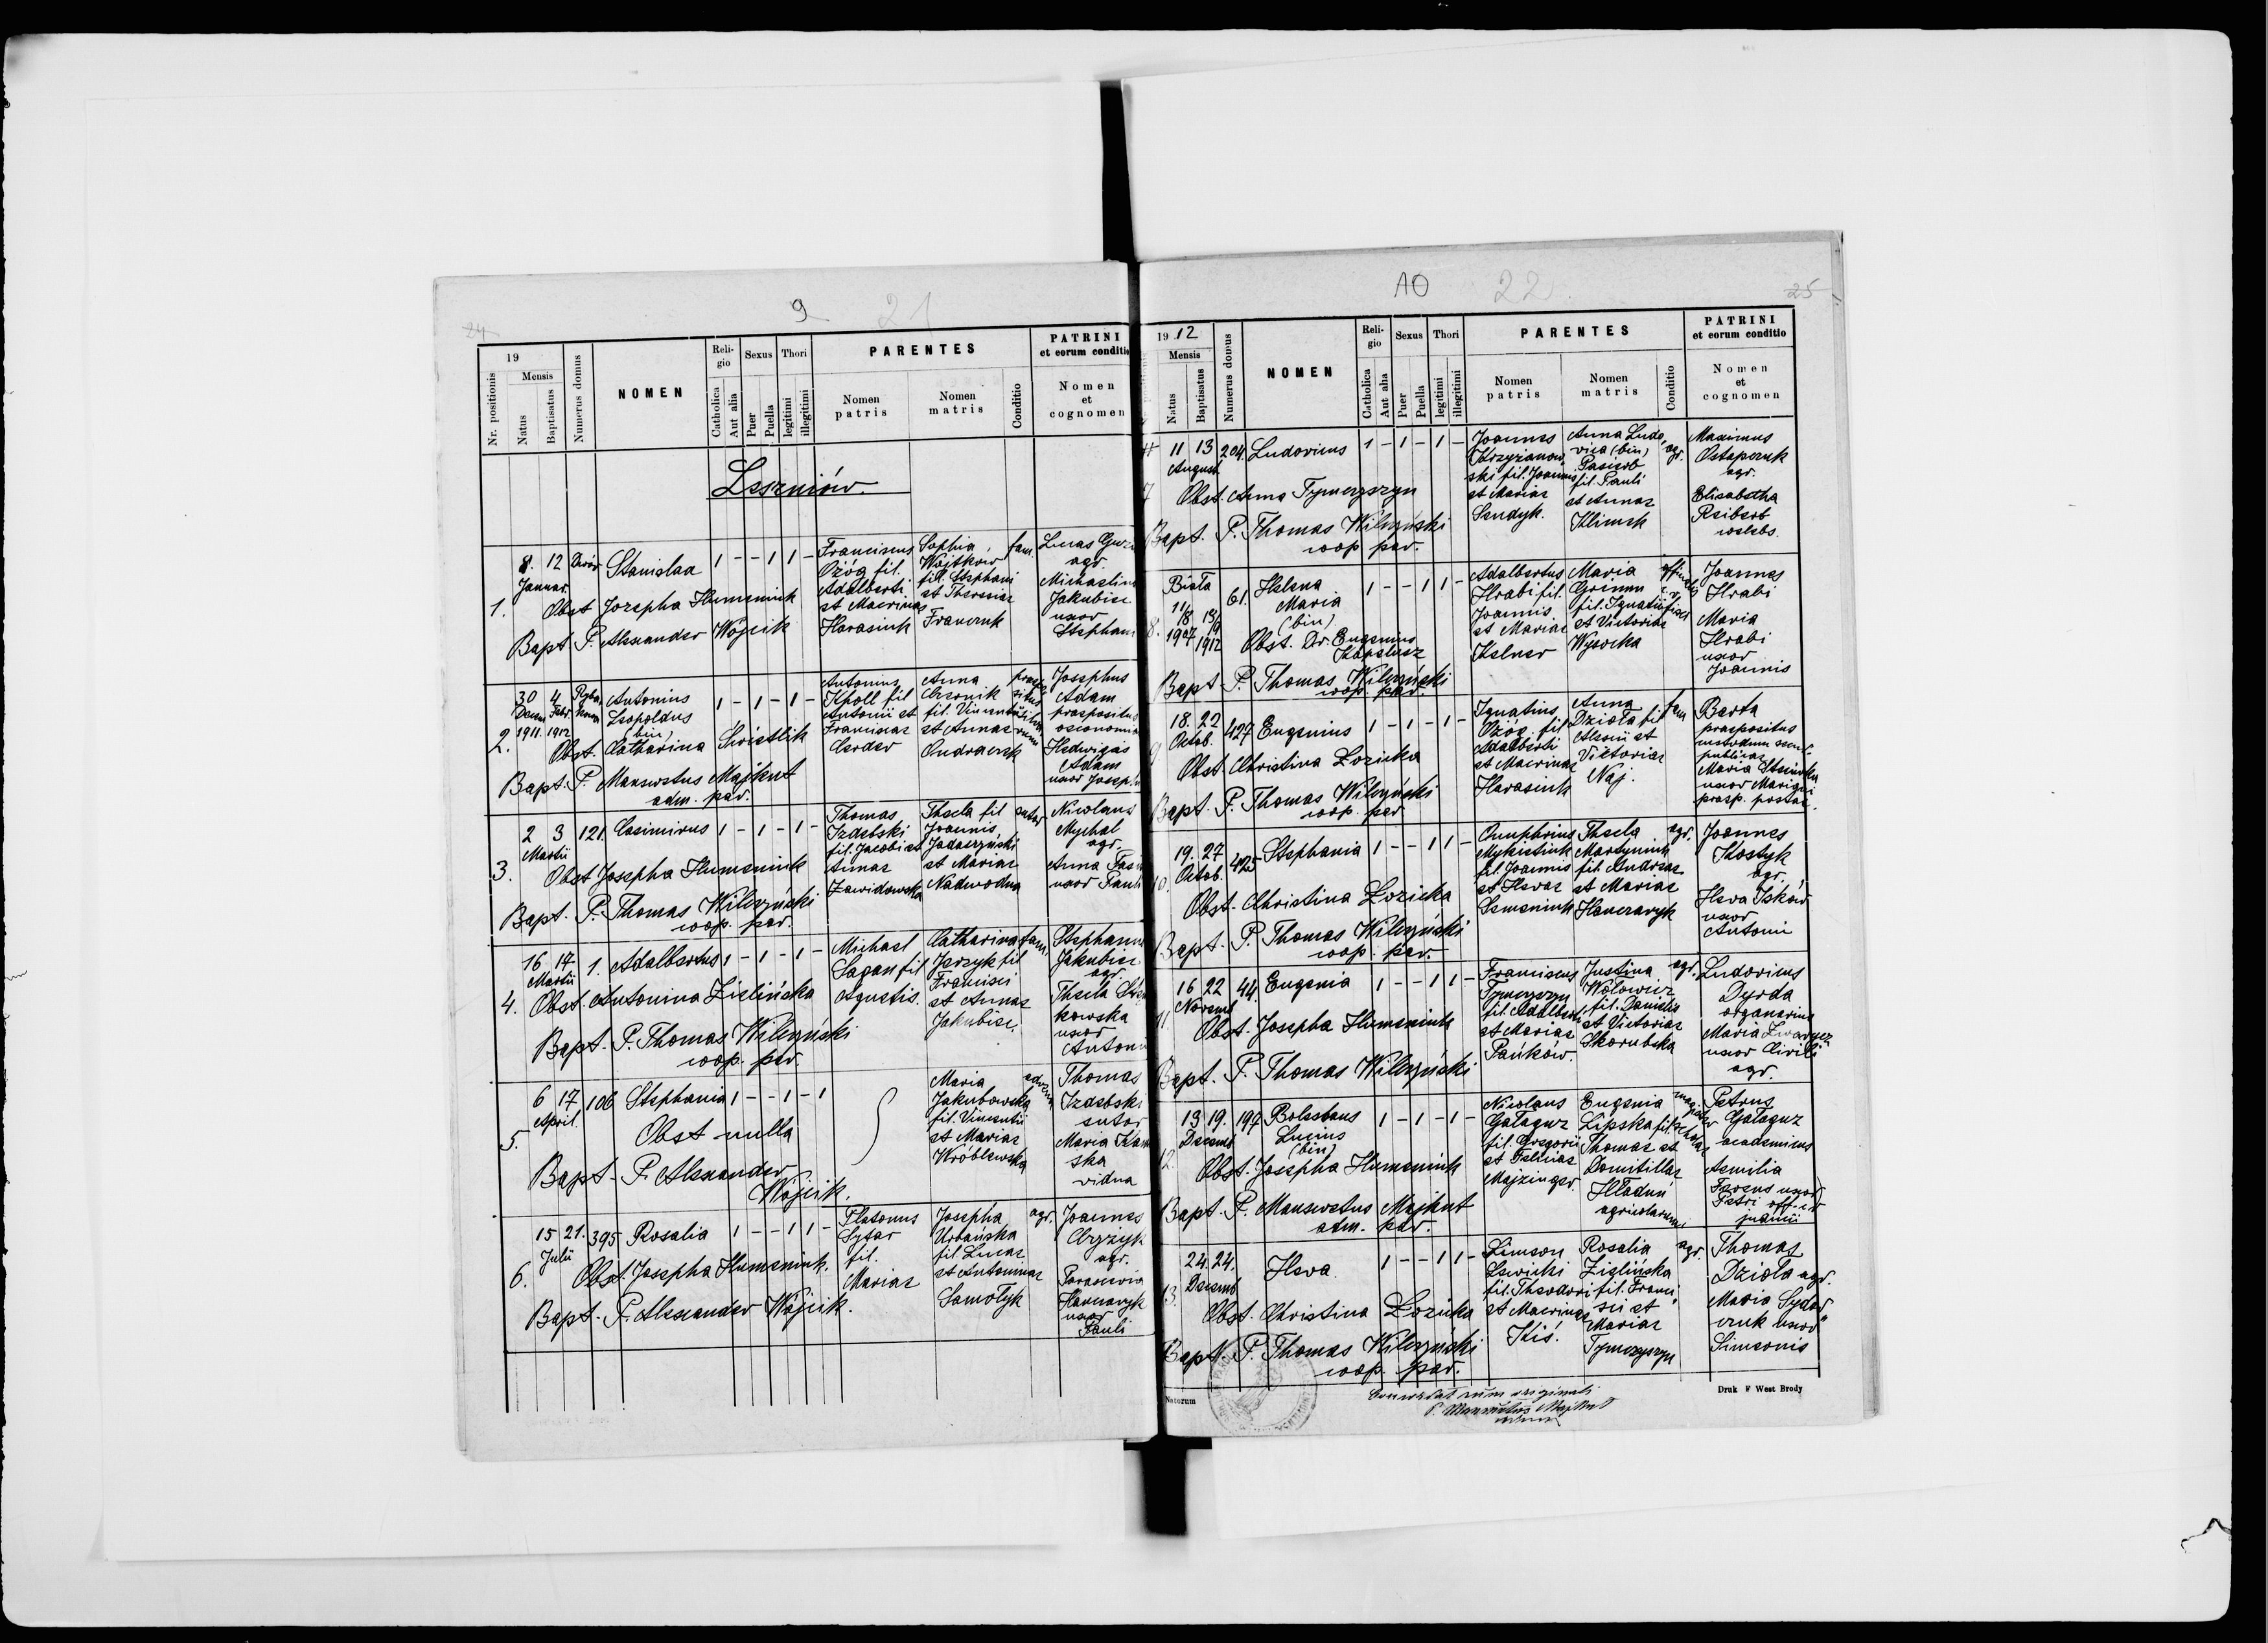 24
9
21
19
Mensis
Nr. positionis
Natus
Baptisatus
Numerus domus
NOMEN
Reli-
gio
Catholica
Aut alia
Sexus
Puer
Puella
Thori
legitimi
illegitimi
PARENTES
Nomen
patris
Nomen
matris
Conditio
PATRINI
et eorum conditio
Nomen
et
cognomen
Leszniów.
1.
8. 12 Dwór Stanislaa 1 - - 1 1 -
Januar.
Obst Josepha Humeniuk
Bapt. P. Alexander Wójcik
Franciscus
Ożóg fil.
Adalberti
et Macrinae
Harasiuk
Sophia
Wojtków
fil. Stephani
et Theresiae
Franczuk
fam.
Lucas
agr.
Michaelina
Jakubiec
uxor
Stephani
2.
30 4
Decem Febr.
1911. 1912
Antonius
Leopoldus
(bin)
1 - 1 - 1 -
Obst Catharina Świetlik
Bapt. P. Mansuetus Majkut
adm. par.
Antonius
Knoll fil
Antonii et
Franciscae
Cerder
Anna
fil. Vincentii
et Annae
Josephus
Adam
praepositus
oeconomiae
Hedwigis
Adam
uxor Josephi
3.
2 3 121. Casimirus 1 - 1 - 1 -
Martii
Obst Josepha Humeniuk
Bapt. P. Thomas Wilczyński
coop. par.
Thomas
Izdebski
fil. Jacobi et
Annae
Zawidowska
Thecla fil
Joannis
Jadaczyński
et Mariae
Nadwodna
sutor
Nicolaus
Mychal
agr.
Anna
uxor Pauli
4.
16 17 1. Adalbertus 1 - 1 - 1 -
Martii
Obst. Antonina Zielińska
Bapt. P. Thomas Wilczyński
coop. par.
Michael
Sagan fil
Agnetis.
Catharina
Jerzyk fil
Francisci
et Annae
Jakubiec.
fam.
Stephanus
Jakubiec
agr.
Thecla
kowska
uxor
Antoni
5.
6 17 106 Stephania 1 - - 1 - 1
April.
Obst nulla
Bapt. P. Alexander
Wójcik.
Maria
Jakubowska
fil. Vincentii
et Mariae
Wróblewska
Thomas
Izdebski
sutor
Maria
ska
vidua
6.
15 21. 395 Rosalia 1 - - 1 1 -
Julii
Obst. Josepha Humeniuk.
Bapt. P. Alexander Wójcik.
Platonus
Sytar
fil.
Mariae
Josepha
Urbańska
fil Lucae
et Antoninae
Samołyk
agr.
Joannes
agr.
Parascevia
Hanczaryk
uxor
Pauli
AO
22
25
1912
Mensis
Natus
Baptisatus
Numerus domus
NOMEN
Reli-
gio
Catholica
Aut alia
Sexus
Puer
Puella
Thori
legitimi
illegitimi
PARENTES
Nomen
patris
Nomen
matris
Conditio
PATRINI
et eorum conditio
Nomen
et
cognomen
7
11 13 204. Ludovicus 1 - 1 - 1 -
August
Obst. Anna Tymczyszyn
Bapt. P. Thomas Wilczyński
coop par.
Joannes
Krzyżanow
ski fil. Joannis
et Mariae
Sendyk.
Anna Ludo
vica (bin)
Pasieb
fil. Pauli
et Annae
Klimek
agr.
Maximus
Ostapczuk
agr.
Elisabetha
Reibert
coelebs.
8.
Biała
11/8 19/9
1907 1912
61. Helena
Maria
(bin)
1 - - 1 1 -
Obst. Dr. Eugenius
Kapelusz
Bapt P. Thomas Wilczyński
coop. par.
Adalbertus
Hrabi fil.
Joannis
et Mariae
Kelner
Maria
Grimm
fil. Ignatii
et Victoriae
Wysocka
Joannes
Hrabi
Maria
Hrabi
uxor
Joannis
9
18. 22 427 Eugenius 1 - 1 - 1 -
Octob.
Obst Christina Łozicka
Bapt. P. Thomas Wilczyński
coop. par
Ignatius
Ożóg fil
Adalberti
et Macrinae
Harasiuk
Anna
Dzioła fil
Alexii et
Victoriae
Naj.
fam
Barta
praepositus
publicae
Maria
uxor
praep. postae
10.
19. 27 425 Stephania 1 - - 1 1 -
Octob.
Obst. Christina Łozicka
Bapt. P. Thomas Wilczyński
coop. par.
Onuphrius
Mykietiuk
fil. Joannis
et Hevae
Semeniuk
Thecla
Martyniuk
fil. Andreae
et Mariae
Hanczaryk
agr.
Joannes
Kostyk
agr.
Heva Iśków
uxor
Antoni
11.
16 22 44. Eugenia 1 - - 1 1 -
Novemb
Obst. Josepha Humeniuk
Bapt. P. Thomas Wilczyński
Franciscus
Tymczyszyn
fil. Adalberti
et Mariae
Pańków.
Justina
Wołowicz
fil. Danielis
et Victoriae
Skorubska
agr.
Ludovicus
Dyrda
organarius
Maria Zwarycz
uxor Cirilli
agr.
12.
13 19. 197 Boleslaus 1 - 1 - 1 -
Decemb
Lucius
(bin)
Obst. Josepha Humeniuk
Bapt. P. Mansuetus Majkut
adm. par.
Nicolaus
Gałagur
fil. Gregorii
et Feliciae
Majzinger.
Eugenia
Lipska fil.
Thomae et
Domitillae
Hładuń
agricolarum
Petrus
Gałagur
academicus
Aemilia
uxor
Petri
13.
24. 24. Heva. 1 - - 1 1 -
Decemb
Obst. Christina Łozicka
Bapt. P. Thomas Wilczyński
coop. par.
Simeon
Lewicki
fil. Theodori
et Macrinae
Kiś.
Rosalia
Zielińska
fil. Franci
sci et
Mariae
Tymczyszyn
agr.
Thomas
Dzioła agr.
Maria Sydor
czuk uxor
Simeonis
Natorum
Concordat cum originali
P. Mansuetus Majkut
Druk F West Brody